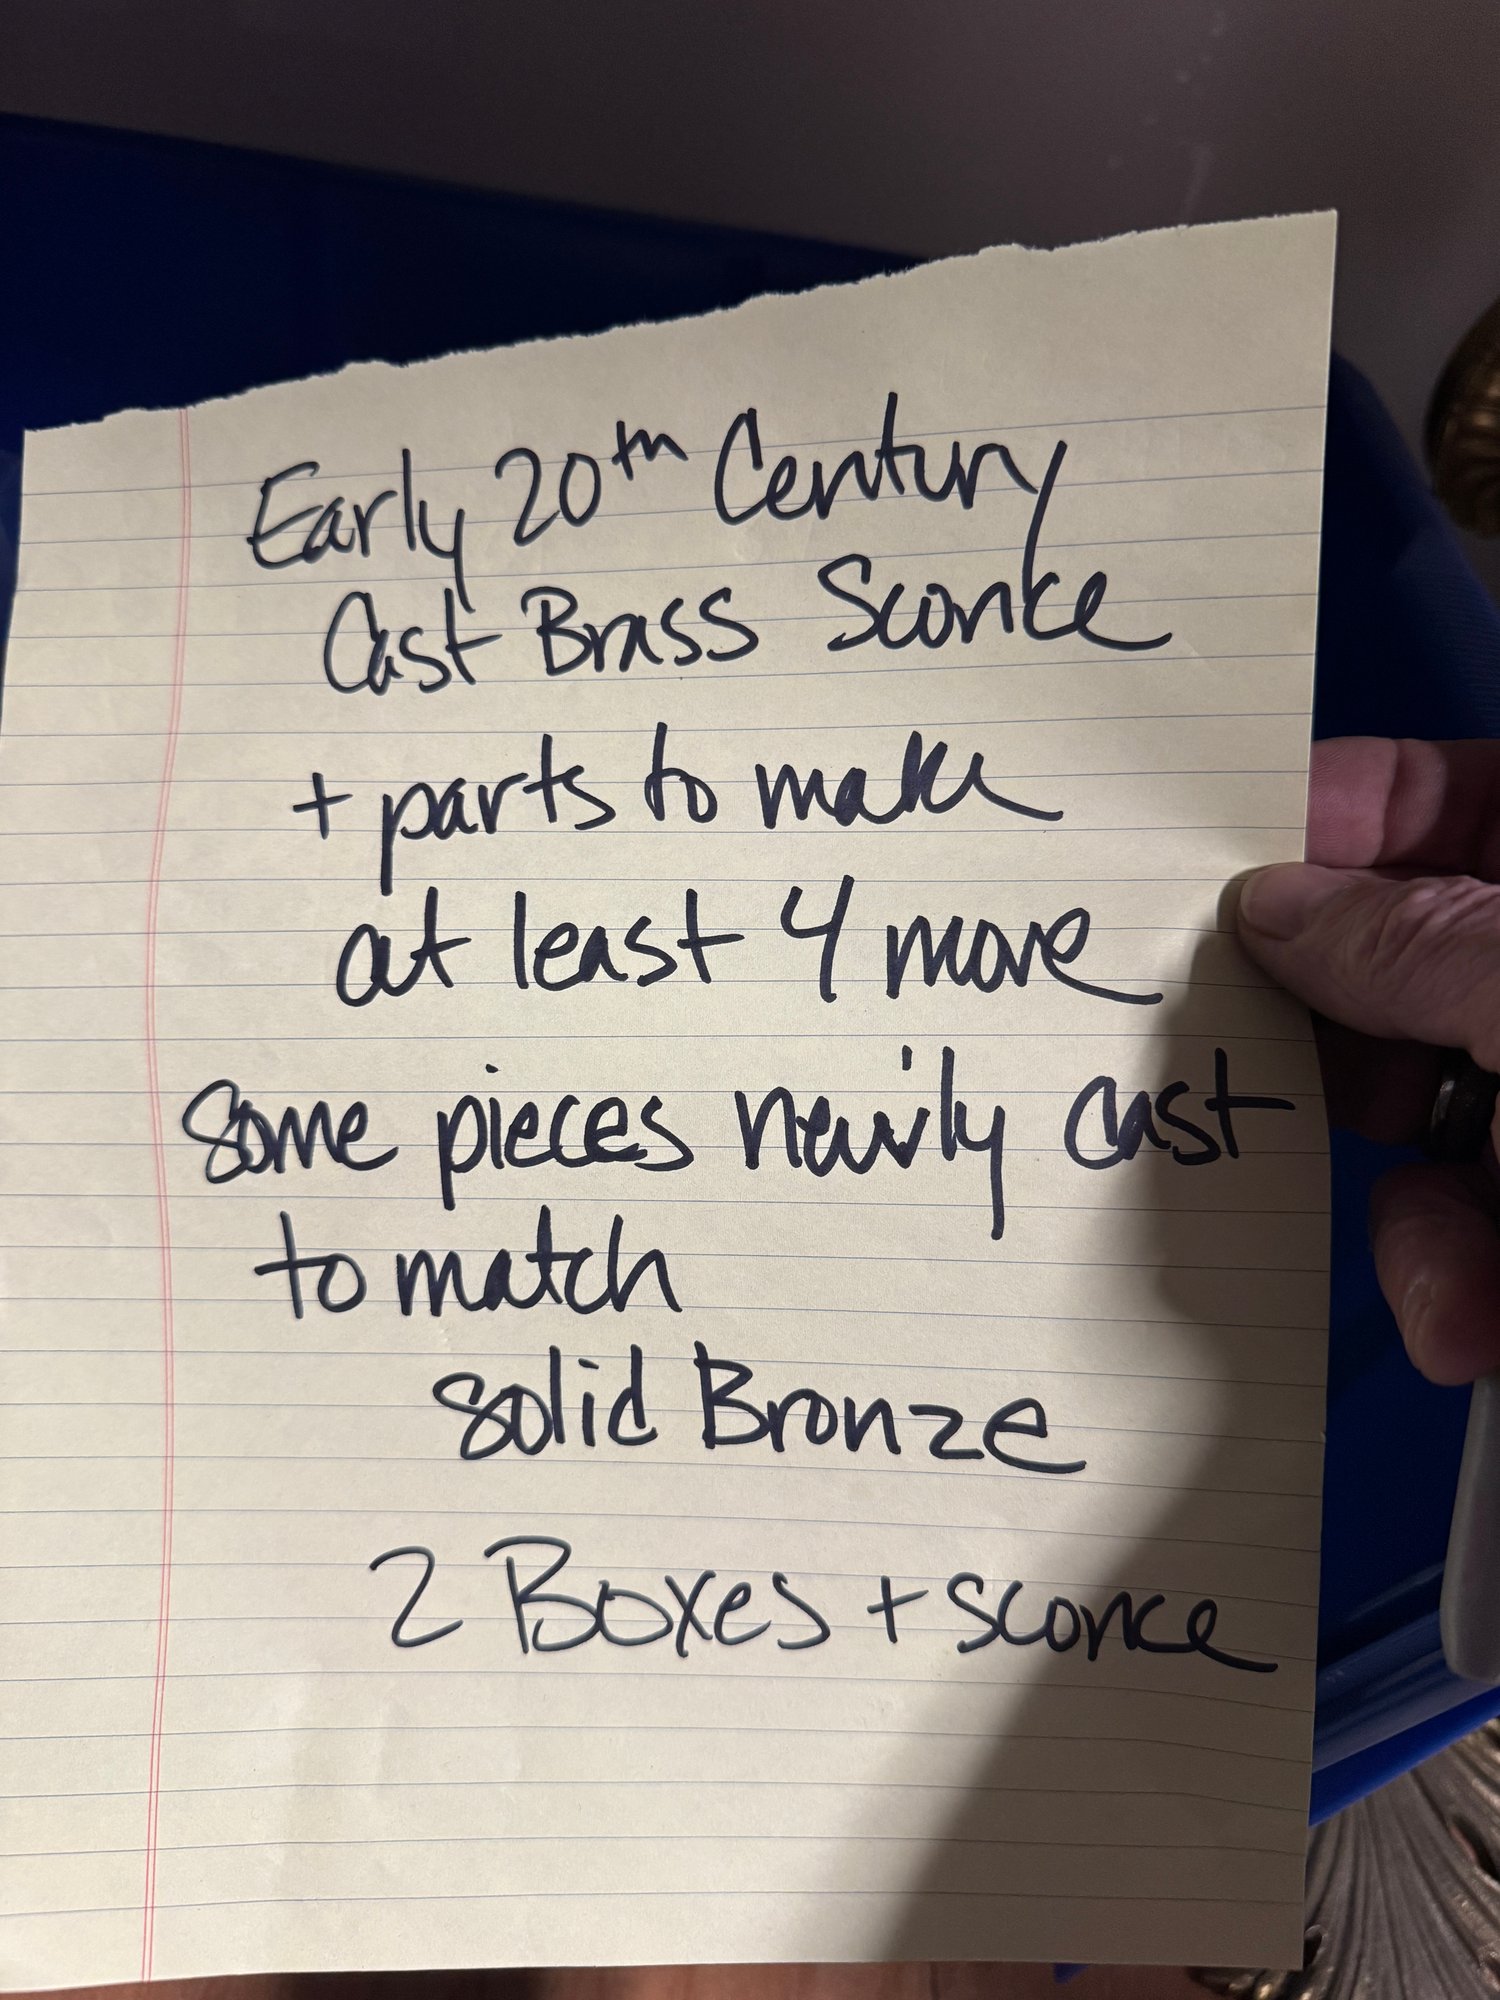 Early 20th Century
Cast Brass Sconce
+ parts to make
at least 4 more
Some pieces newly cast
to match
solid Bronze
2 Boxes + sconce